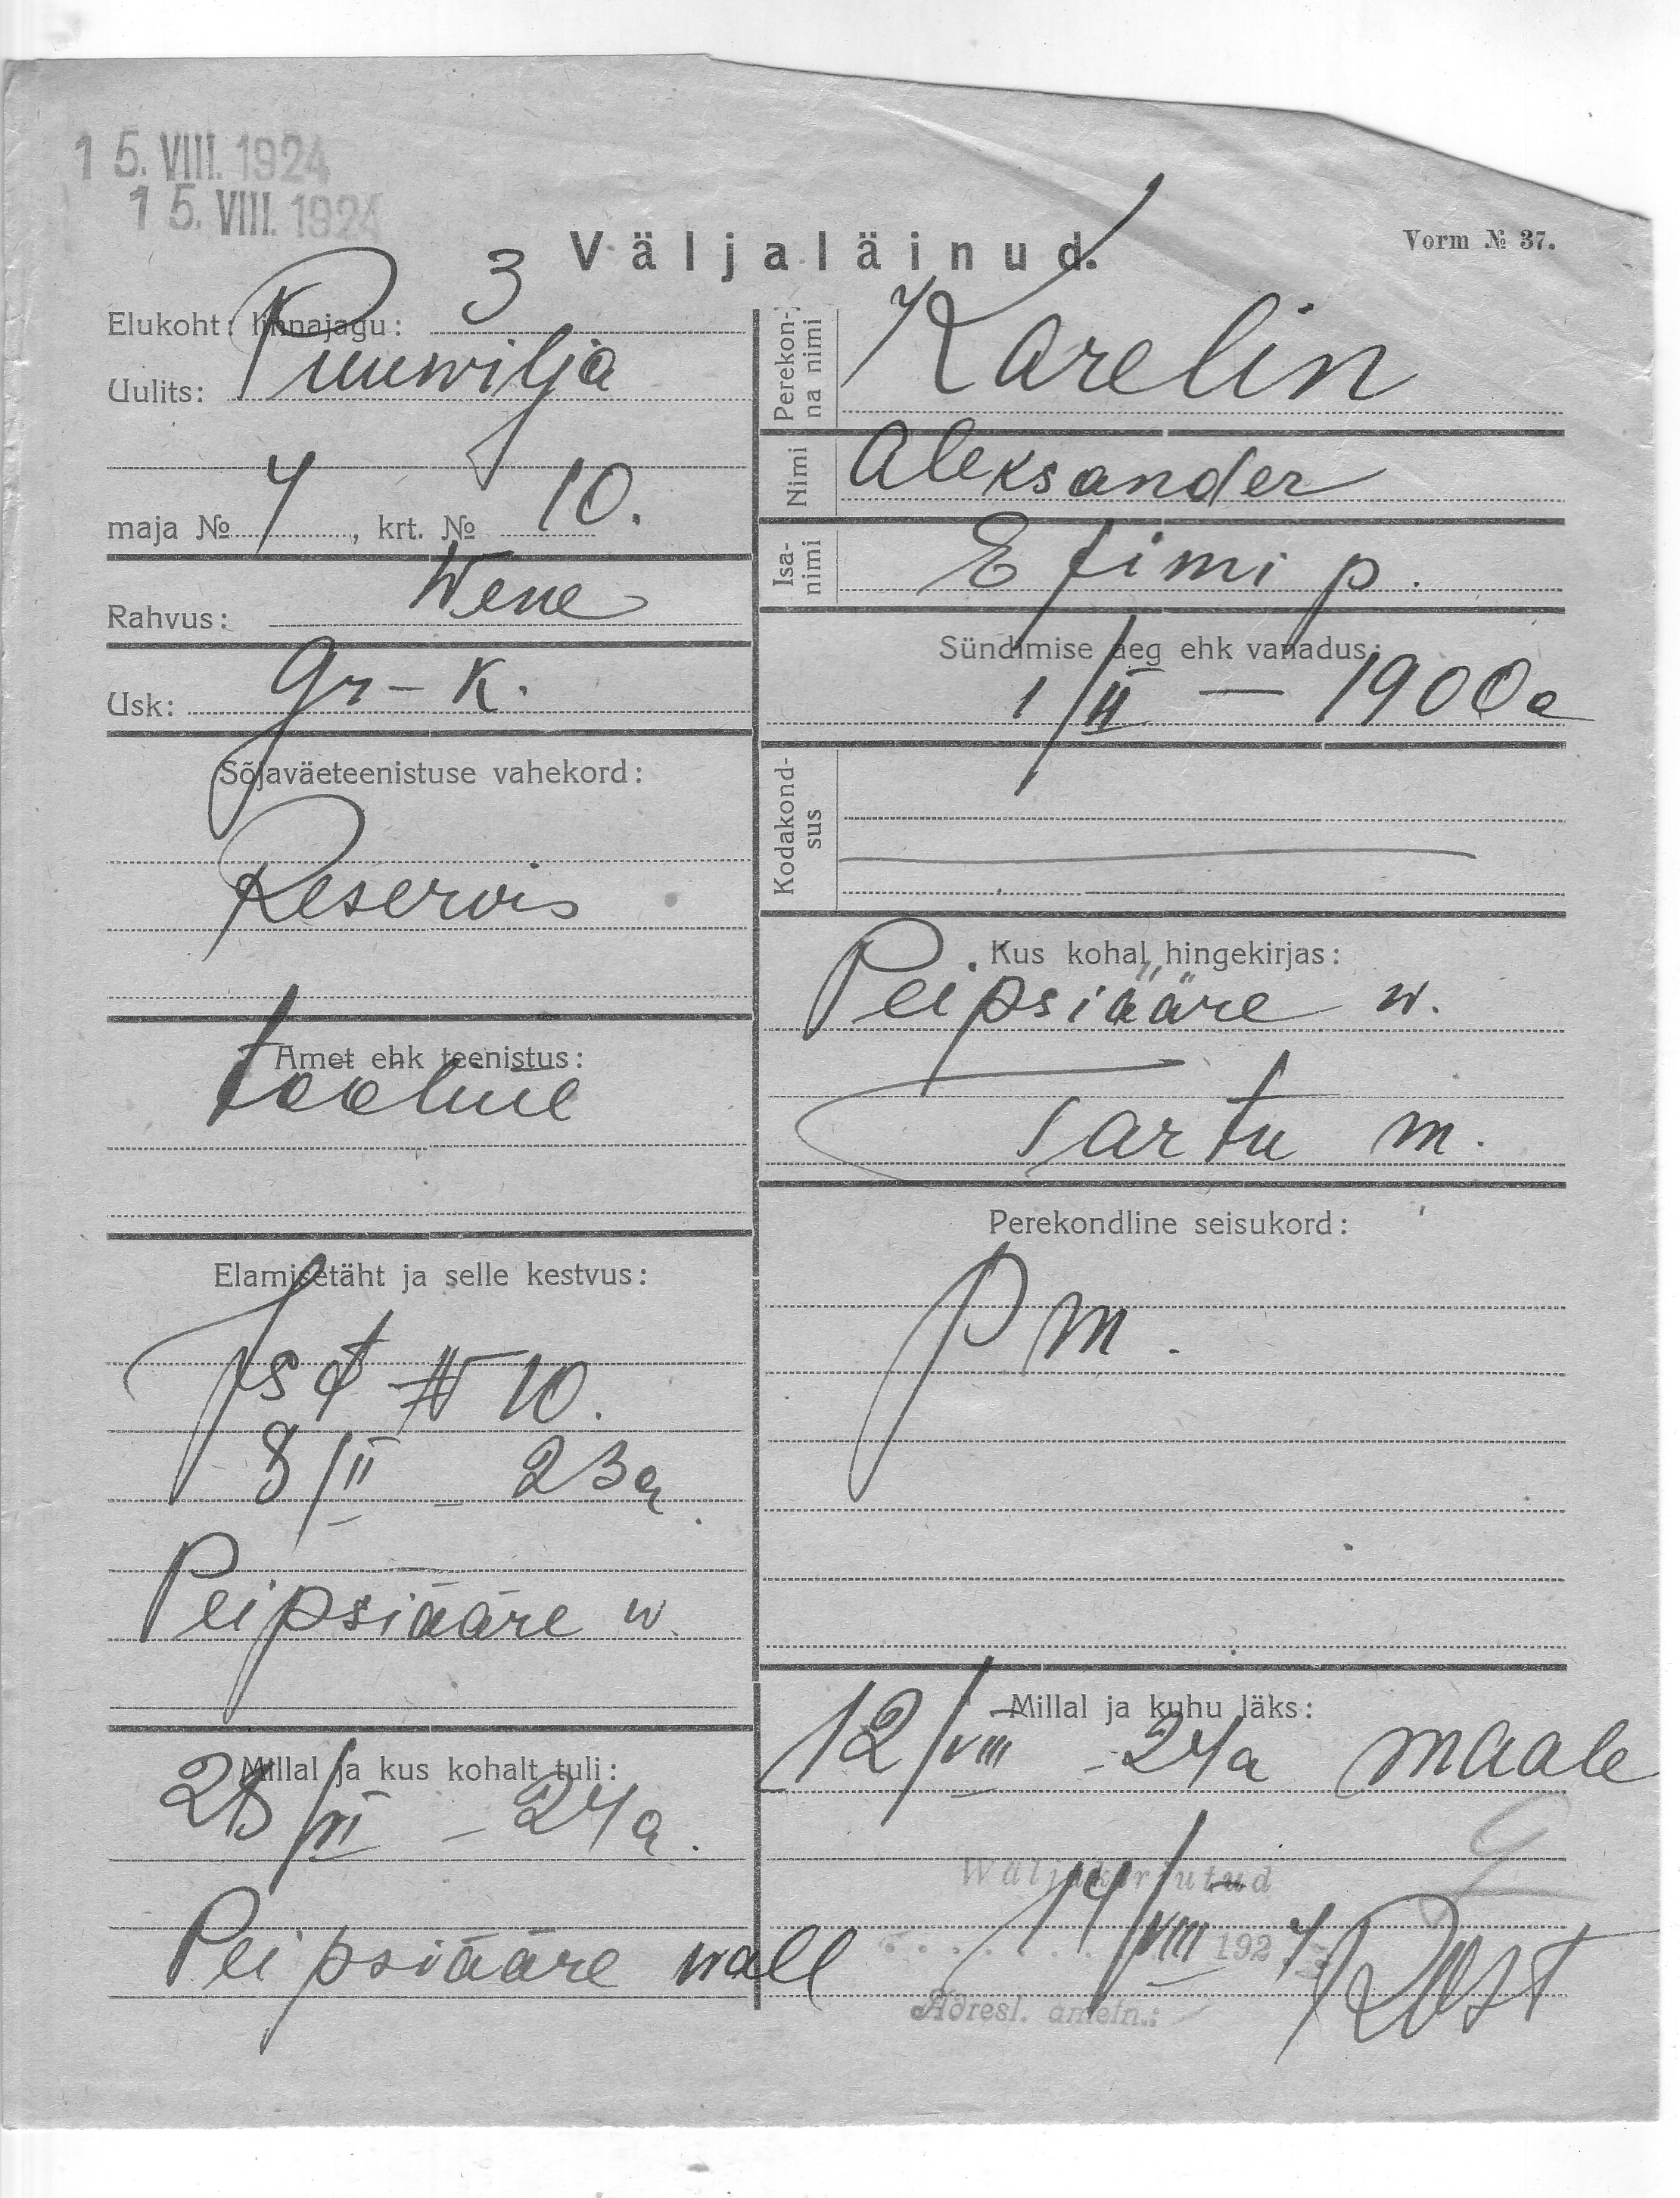 15. VIII. 1924
15. VIII. 1924
Väljaläinud.
Vorm № 37.
Elukoht: linnajagu: 3
Uulits: Puuwilja
maja № 4, krt. № 10.
Rahvus: Wene
Usk: Gr-K.
Sõjaväeteenistuse vahekord:
Reservis
Amet ehk teenistus:
tööline
Elamisetäht ja selle kestvus:
№ 10.
8/II - 23a
Peipsiääre w.
Millal ja kus kohalt tuli:
- 24a.
Peipsiääre wall
Perekonna nimi Karelin
Nimi Aleksander
Isanimi Efimi p.
Sündimise aeg ehk vanadus:
1/II — 1900a
Kodakondsus
Kus kohal hingekirjas:
Peipsiääre w.
Tartu m.
Perekondline seisukord:
pm.
Millal ja kuhu läks:
12/VIII - 24a maale
Wäljakirjutud
14/VIII 1924
Adresl. ametn.: